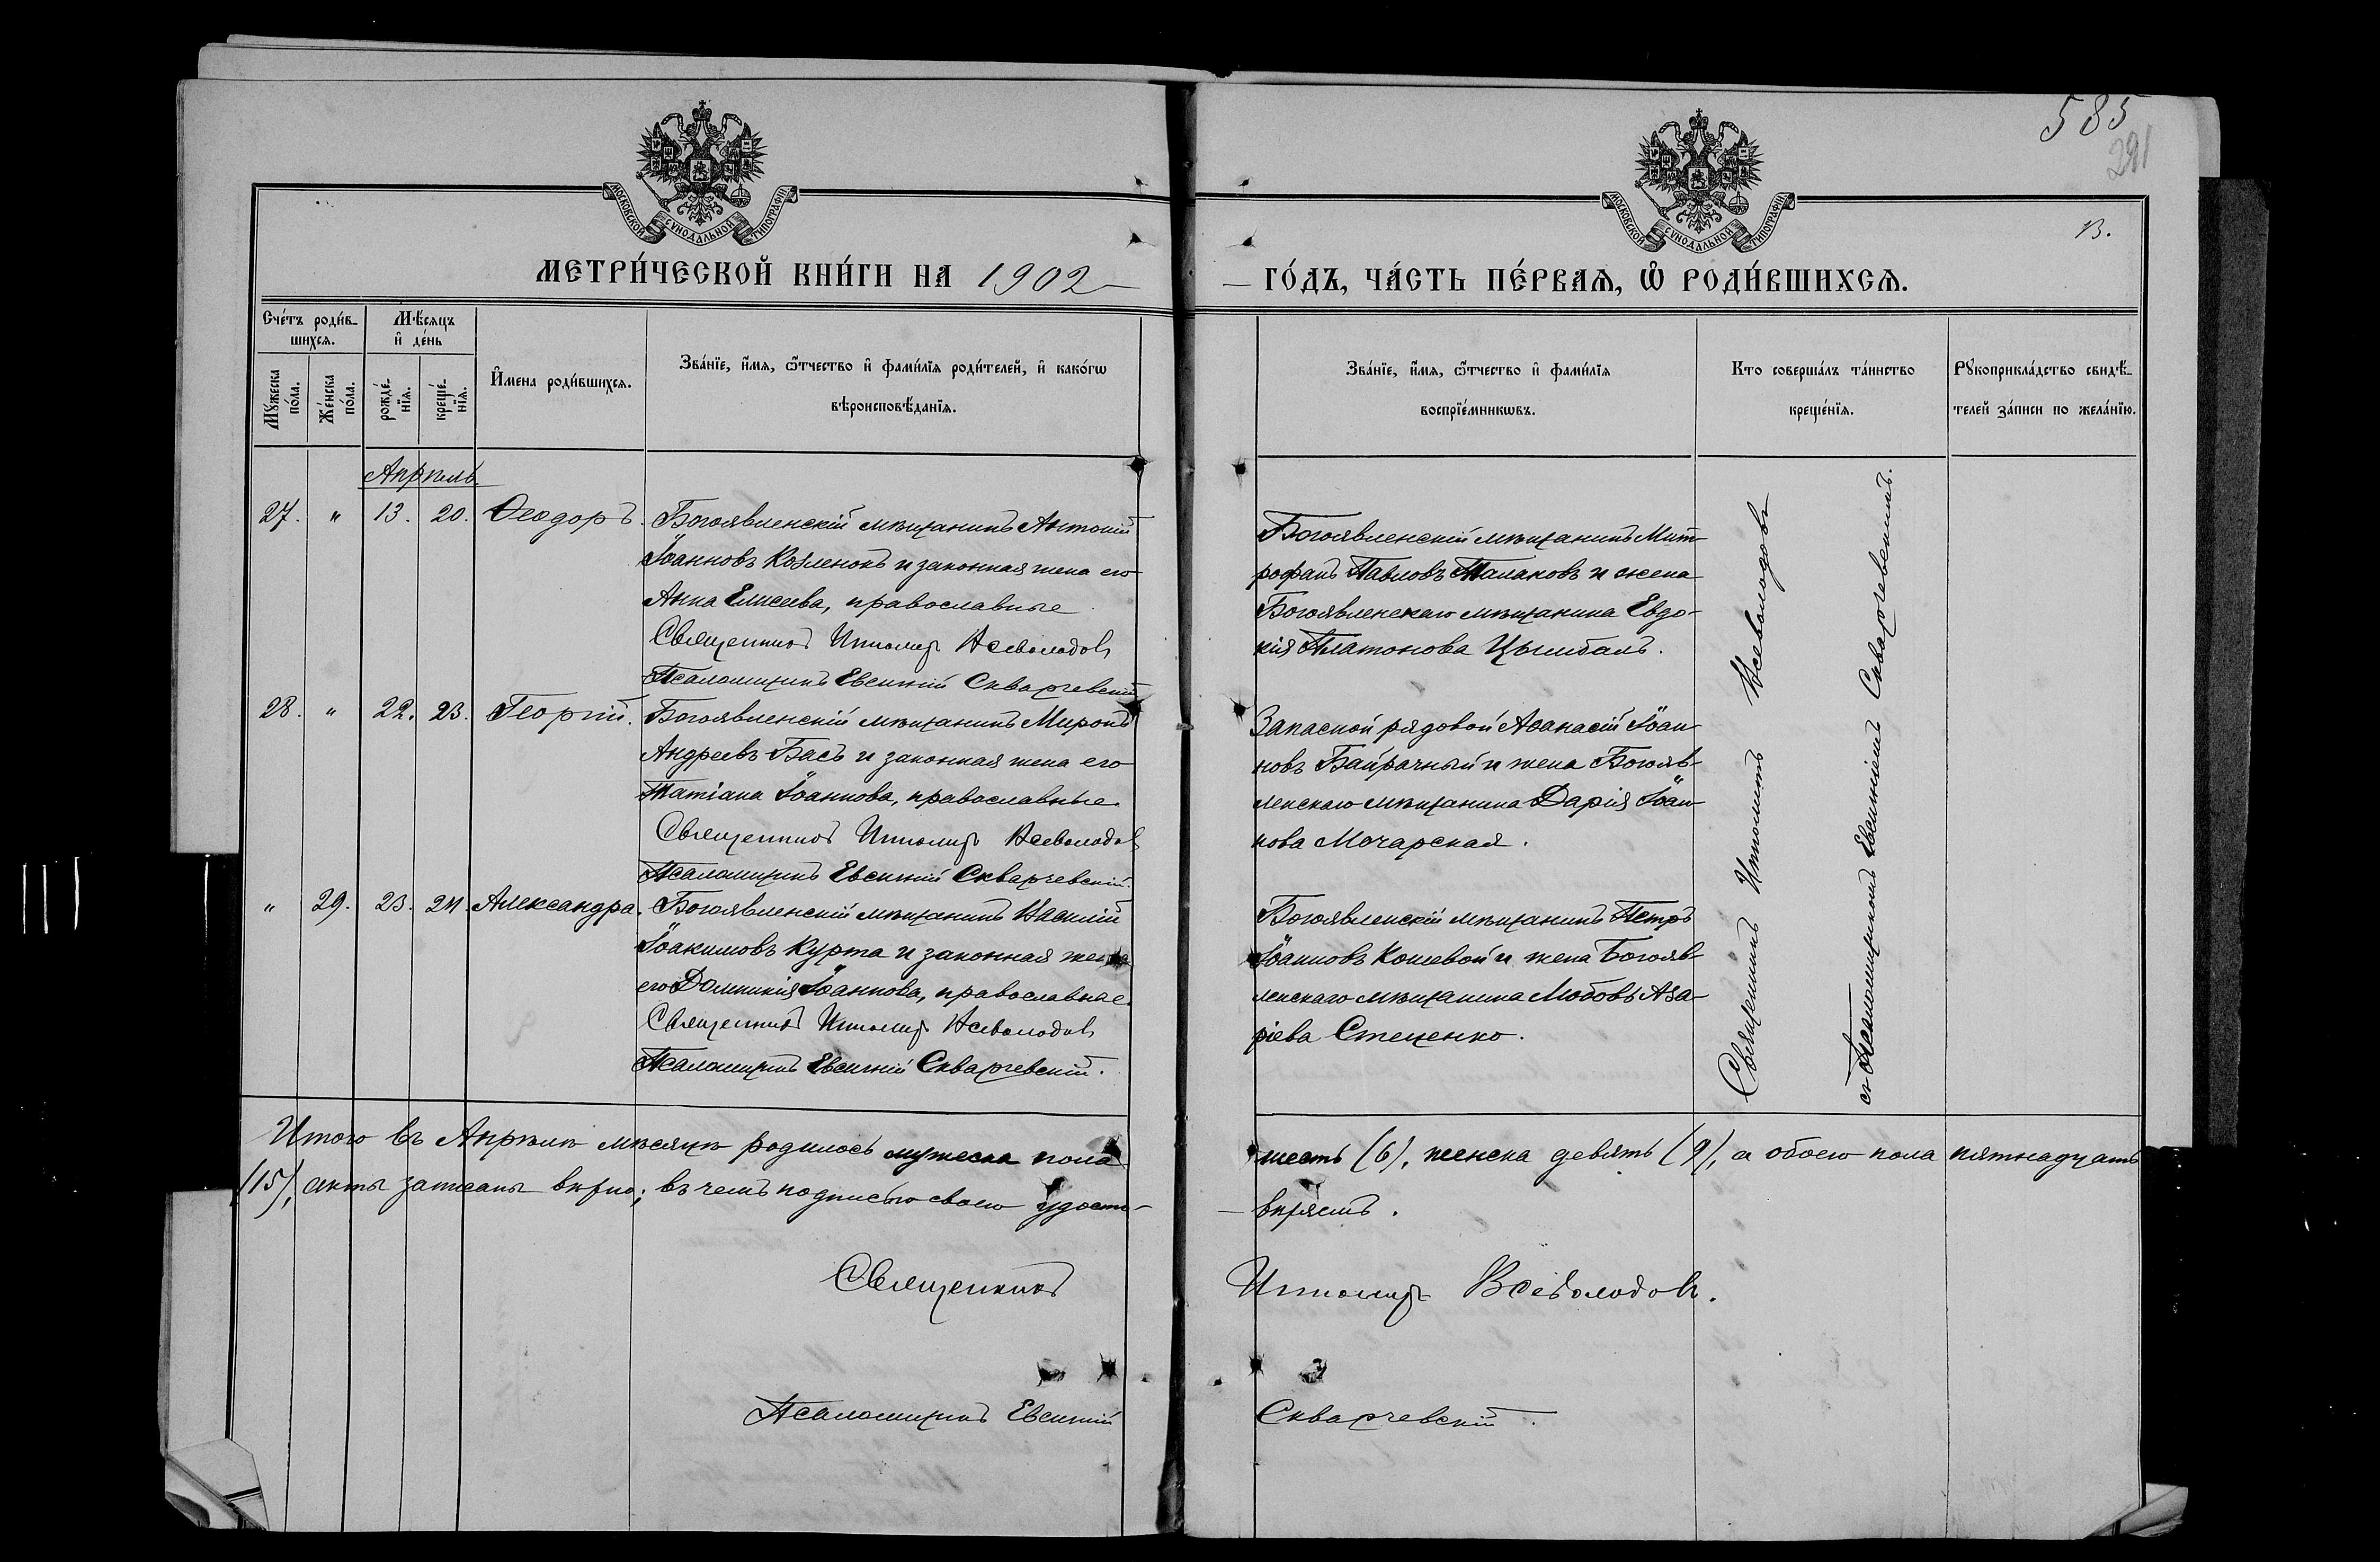 585
291
13.
МОСКОВСКОЙ СѴНОДАЛЬНОЙ ТИПОГРАФІИ
МОСКОВСКОЙ СѴНОДАЛЬНОЙ ТИПОГРАФІИ
МЕТРИ́ЧЕСКОЙ КНИ́ГИ НА 1902 –
– ГО́ДЪ, ЧА́СТЬ ПЕ́РВАѦ, Ѡ҆ РОДИ́ВШИХСѦ.
Сче́тъ роди́в-
шихсѧ.
Мꙋ́жеска по́ла.
Же́нска по́ла.
Мѣ́сяцъ
и҆ де́нь
рожде́-
нїѧ.
креще́-
нїѧ.
И҆мена роди́вшихсѧ.
Зва́нїе, и҆́мѧ, ѻ҆́тчество и҆ фами́лїѧ роди́телей, и҆ како́гѡ
вѣроисповѣ́данїѧ.
Зва́нїе, и҆́мѧ, ѻ҆́тчество и҆ фами́лїѧ
воспрїе́мникѡвъ.
Кто соверша́лъ та́инство
креще́нїѧ.
Рꙋкоприкла́дство свидѣ́-
телей за́писи по жела́нїю.
Апрѣль
27. " 13. 20. Ѳеодоръ. Богоявленскій мѣщанинъ Антоній
Іоанновъ Козленокъ и законная жена его
Анна Елисеева, православные
Священникъ Всеволодовъ
Псаломщикъ Евсигній Скварчевскій
Богоявленскій мѣщанинъ Мит-
рофанъ Павловъ Талаковъ и жена
Богоявленскаго мѣщанина Евдо-
кія Платонова Цымбалъ.
28. " 22. 23. Георгій. Богоявленскій мѣщанинъ Миронъ
Андреевъ Басъ и законная жена его
Татіана Іоаннова, православные.
Священникъ Всеволодовъ
Псаломщикъ Евсигній Скварчевскій.
Запасной рядовой Аѳанасій Іоан-
новъ Байрачный и жена Богояв-
ленскаго мѣщанина Дарія Іоан-
нова Мочарская.
" 29. 23. 24. Александра. Богоявленскій мѣщанинъ Василій
Іоакимовъ Курта и законная жена
его Домникія Іоаннова, православные.
Священникъ Всеволодовъ
Псаломщикъ Евсигній Скварчевскій.
Богоявленскій мѣщанинъ Петръ
Іоанновъ Кошевой и жена Богояв-
ленскаго мѣщанина Любовь Аза-
ріева Стеценко.
Священникъ Всеволодовъ
съ Псаломщикомъ Евсигніемъ Скварчевскимъ.
Итого въ Апрѣлѣ мѣсяцѣ родилось мужеска пола шесть (6), женска девять (9), а обоего пола пятнадцать
(15); акты записаны вѣрно; въ чемъ подписью своею удосто-
– вѣряемъ.
Священникъ Всеволодовъ.
Псаломщикъ Евсигній Скварчевскій.